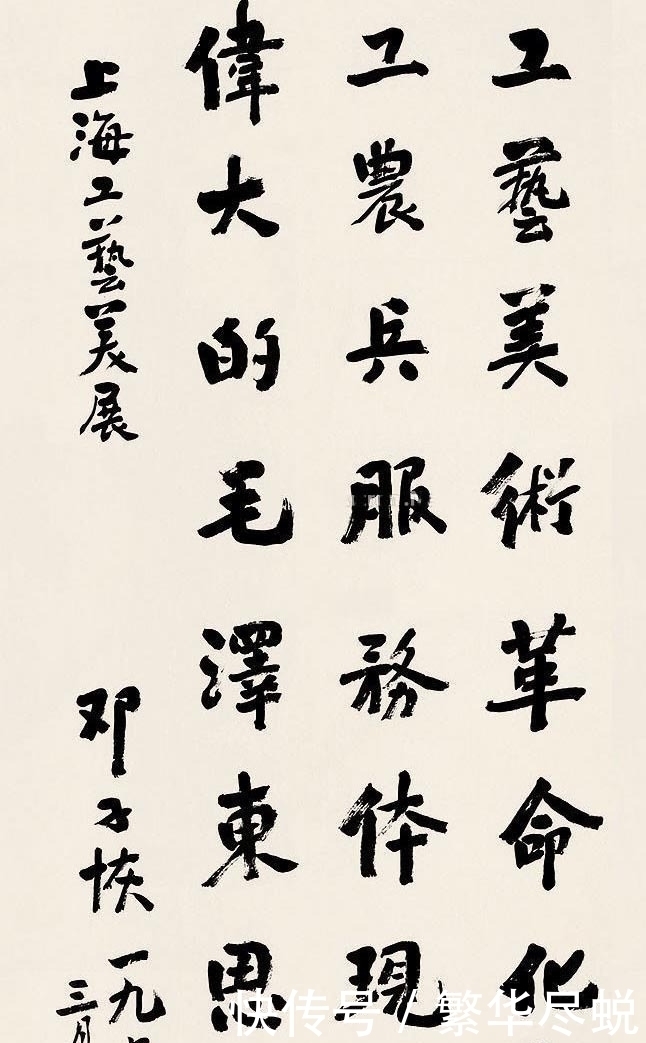 工藝美術革命化
工農兵服務体現
偉大的毛澤東思
上海工藝美展
邓子恢 一九
三月
快传号/繁华尽蜕